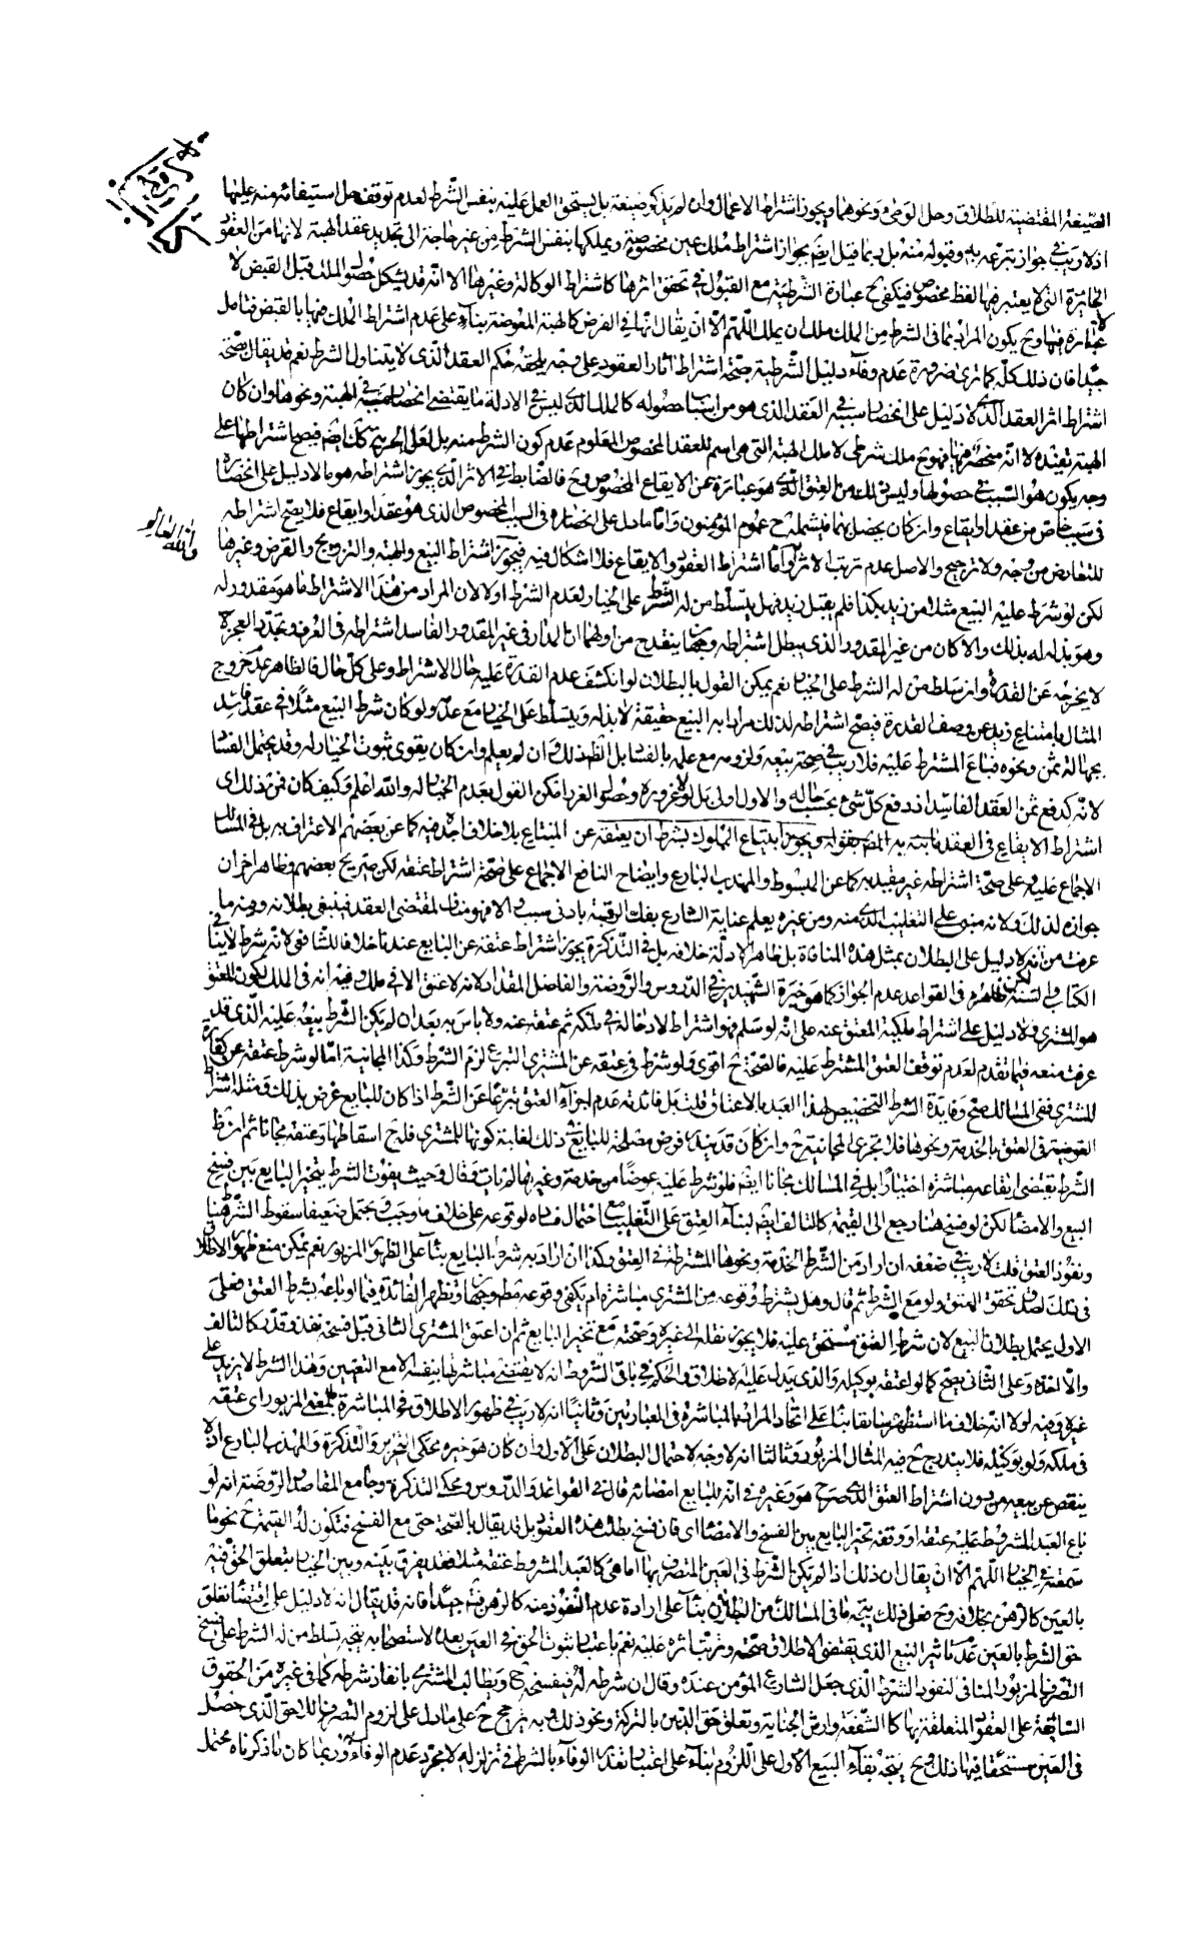 الصيغة المقتضية للطلاق وحل الوطئ ونحوها ويجوز اشتراط الاعمال وان لم يذكر صيغة بل يستحق العمل عليه بنفس الشرط لعدم توقف حل استيفائه منه عليها
اذ لا ريب في جواز تبرعه به وقبوله منه بل ربما قيل ايضم بجواز اشتراط ملك عين مخصوصة ويملكها بنفس الشرط من غير حاجة الى تجديد عقد الهبة لانها من العقود
الجائزة التي لا يعتبر فيها لفظ مخصوص فيكفي ح عبارة الشرطية مع القبول في تحقق اثرها كاشتراط الوكالة وغيرها الا انه قد يشكل حصول الملك قبل القبض لا
عتباره فيها وح يكون المراد بما في الشرط من الملك ملك ان يملك اللهم الا ان يقال انها في الفرض كالهبة المعوضة بناء على عدم اشتراط الملك فيها بالقبض فتامل
جيدا فان ذلك كله كما ترى ضرورة عدم وفاء دليل الشرطية بصحة اشتراط آثار العقود على وجه يلحقه حكم العقد الذي لا يتناول الشرط نعم قد يقال بصحة
اشتراط اثر العقد الذي لا دليل على انحصار سببه في العقد الذي هو من اسباب حصوله كالملك الذي ليس في الادلة ما يقتضي انحصار سببه في الهبة ونحوها وان كان
الهبة تفيده لا انه منحصر فيها فهو ح ملك شرطي لا ملك الهبة التي هي اسم للعقد المخصوص المعلوم عدم كون الشرط منه بل لعل الحرية كك ايضم فيصح اشتراطها على
وجه يكون هو السبب في حصولها وليس ذلك من العتق الذي هو عبارة عن الايقاع المخصوص وح فالضابط في الاثر الذي يجوز اشتراطه هو ما لا دليل على انحصاره
في سبب خاص من عقد او ايقاع وان كان يحصل بهما فيشمله ح عموم المؤمنون واما ما دل على انحصاره في السبب المخصوص الذي هو عقد او ايقاع فلا يصح اشتراطه
للتعارض من وجه ولا ترجيح والاصل عدم ترتب الاثر واما اشتراط العقود والايقاع فلا اشكال فيه فيجوز اشتراط البيع والهبة والتزويج والقرض وغيرها
لكن لو شرط عليه البيع مثلا من زيد بكذا فلم يقبل زيد فهل يتسلط من له الشرط على الخيار لعدم الشرط او لا لان المراد من هذا الاشتراط ما هو مقدور له
وهو بذله له بذلك والا كان من غير المقدور الذي يبطل اشتراطه وجهان ينقدح من اولهما ان المدار في غير المقدور الفاسد اشتراطه في العرف وتجدد العجز لا
لا يخرجه عن القدرة وان سلط من له الشرط على الخيار نعم يمكن القول بالبطلان لو انكشف عدم القدرة عليه حال الاشتراط وعلى كل حال فالظاهر عدم خروج
المثال بامتناع زيد عن وصف القدرة فيصح اشتراطه لذلك مرادا به البيع حقيقة لا بذله ويتسلط على الخيار مع عدمه ولو كان شرط البيع مثلا في عقد فاسد
بجهالة ثمن ونحوه فباع المشترط عليه فلا ريب في صحة بيعه ولزومه مع علمه بالفساد بل الظ ذلك وان لم يعلم وان كان يقوى ثبوت الخيار له وقد يحتمل الفساد
لانه كدفع ثمن العقد الفاسد اذ دفع كل شئ بحسب حاله والاول اولى بل لولا غروره وحصول الضرر امكن القول بعدم الخيار له والله اعلم وكيف كان فمن ذلك اى
اشتراط الايقاع في العقد ما نبه به المصم بقوله ويجوز ابتياع المملوك بشرط ان يعتقه عن المبتاع بلا خلاف اجده فيه كما عن بعضهم الاعتراف به بل في المسالك
الاجماع عليه وعلى صحة اشتراطه غير مقيد به كما عن المبسوط والمهذب البارع وايضاح النافع الاجماع على صحة اشتراط عتقه لكن صريح بعضهم وظاهر اخر ان
جوازه لذلك ولانه مبنى على التغليب الذي منه ومن غيره يعلم عناية الشارع بفك الرقبة بادنى سبب والا فهو مناف لمقتضى العقد فينبغي بطلانه وفيه ما
عرفت من انه لا دليل على البطلان بمثل هذه المنافاة بل ظاهر الادلة خلافه بل في التذكرة يجوز اشتراط عتقه عن البايع عندنا خلافا للشافعي لانه شرط لا ينافي
الكتاب ولا السنة لكن ظاهره في القواعد عدم الجواز كما هو خيرة الشهيدين في الدروس والروضة والفاضل المقداد لانه لا عتق الا في ملك وفيه انه في الملك لكون المعتق
هو المشتري ولا دليل على اشتراط ملكية المعتق عنه على انه لو سلم فهو اشتراط لادخاله في ملكه ثم عتقه عنه ولا باس به بعد ان لم يكن الشرط بيعه عليه الذي قد
عرفت منعه فيما تقدم لعدم توقف العتق المشترط عليه فالصحة ح اقوى ولو شرط في عتقه عن المشتري التبرع لزم الشرط وكذا المجانية اما لو شرط عتقه عن كفارة
للمشتري ففي المسالك صح وفايدة الشرط التخصيص لهذا العبد بالاعتاق قلت بل فائدته عدم اجزاء العتق تبرعا عن الشرط اذا كان للبايع غرض بذلك ومثله اشتراط
العوضية في العتق بالخدمة ونحوها فلا تجزي المجانية ح وان كان قد يفرض مصلحة للبايع في ذلك لغلبة كونها للمشتري فله ح اسقاطها وعتقه مجانا ثم ان ظ
الشرط يقتضى ايقاعه مباشرة اختيارا بل في المسالك مجانا ايضم فلو شرط عليه عوضا من خدمة وغيرها لم يات به وقال وحيث يفوت الشرط يتخير البايع بين فسخ
البيع والامضاء لكن لو فسخ هنا رجع الى القيمة كالتالف ايضم لبناء العتق على التغليب مع احتمال فساده لوقوعه على خلاف ما وجب ويحتمل ضعيفا سقوط الشرط هنا
ونفوذ العتق قلت لا ريب في ضعفه ان اراد من الشرط الخدمة ونحوها المشترطة في العتق وكذا ان اراد به شرط البايع بناء على الظهور المزبور نعم يمكن منع ظهور الاطلاق
في ذلك لصدق تحقق العتق ولو مع الشرط ثم قال وهل يشترط وقوعه من المشتري مباشرة ام يكفي وقوعه مطم وجهان وتظهر الفائدة فيما لو باعه بشرط العتق فعلى
الاول يحتمل بطلان البيع لان شرط العتق مستحق عليه فلا يجوز نقله الى غيره وصحته مع تخير البايع ثم ان اعتق المشتري الثاني قبل فسخه نفذ وقدر كالتالف
والا اخذه وعلى الثاني يصح كما لو اعتقه بوكيله والذي يدل عليه الاطلاق والحكم في باقي الشروط انه لا يقتضي مباشرتها بنفسه الا مع التعيين وهذا الشرط لا يزيد على
غيره وفيه اولا انه خلاف ما استظهر سابقا بناء على اتحاد المراد بالمباشرة في العبارتين وثانيا انه لا ريب في ظهور الاطلاق في المباشرة بالمعنى المزبور اى عتقه
في ملكه ولو بوكيله فلا يندرج ح فيه المثال المزبور وثالثا انه لا وجه لاحتمال البطلان على الاول وان كان هو خيرة محكي التحرير والتذكرة والمهذب البارع اذ لا
ينقص عن بيعه من دون اشتراط العتق الذي صرح هو وغيره في انه للبايع امضائه قال في القواعد والدروس ومحكى التذكرة وجامع المقاصد والروضة انه لو
باع العبد المشروط عليه عتقه او وقفه تخير البايع بين الفسخ والامضاء اى فان فسخ بطلت هذه العقود بل قد يقال بالصحة حتى مع الفسخ فتكون له القيمة ح نحو ما
سمعته في الخيار اللهم الا ان يقال ان ذلك اذا لم يكن الشرط في العين المتصرف بها اما هي كالعبد المشروط عتقه مثلا فقد يفرق بينه وبين الخيار بتعلق الحق فيه
بالعين كالرهن بخلافه وح فعلى ذلك يتجه ما في المسالك من البطلان بناء على ارادة عدم النفوذ منه كالرهن فتامل جيدا فانه قد يقال انه لا دليل على اقتضاء تعلق
حق الشرط بالعين عدم تاثير البيع الذي يقتضي الاطلاق صحته وترتب اثره عليه نعم باعتبار ثبوت الحق في العين بعد الاستصحاب يتجه تسلط من له الشرط على فسخ
التصرف المزبور المنافي لنفوذ الشرط الذي جعل الشارع المؤمن عنده وقال ان شرطه له فيفسخ ح ويطالب المشتري بانفاذ شرطه كما في غيره من الحقوق
السابقة على العقود المتعلقة بها كالشفعة وارش الجناية وتعلق حق الدين بالتركة ونحو ذلك وبه يرجح ح على ما دل على لزوم التصرف اللاحق الذي حصل
في العين مستحقا فيها ذلك وح يتجه بقاء البيع الاول على اللزوم بناء على اعتبار تعذر الوفاء بالشرط في تزلزله لا مجرد عدم الوفاء وربما كان ما ذكرناه محتمل